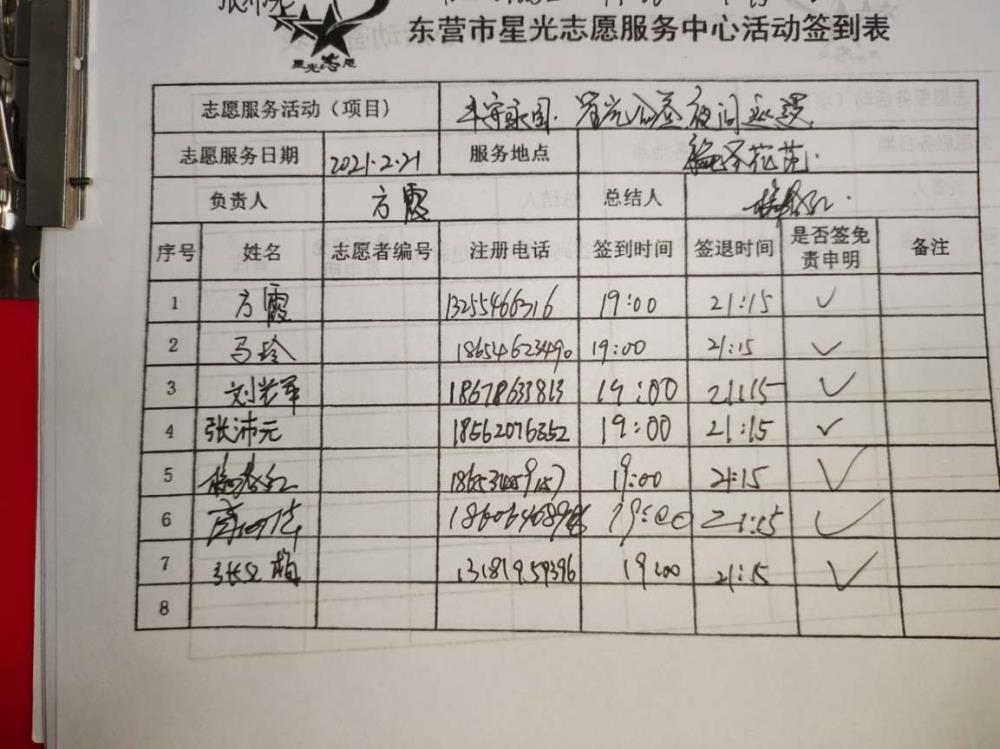 东营市星光志愿服务中心活动签到表
星光志愿
志愿服务活动（项目） 平安家园·星光公益夜间巡逻
志愿服务日期 2021.2.21 服务地点
负责人 方霞 总结人
序号 姓名 志愿者编号 注册电话 签到时间 签退时间 是否签免责申明 备注
1 方霞 13255466316 19:00 21:15 ✓
2 马玲 18654623490 19:00 21:15 ✓
3 刘兴军 18678633813 19:00 21:15 ✓
4 张沛元 18562076352 19:00 21:15 ✓
5 19:00 21:15 ✓
6 19:00 21:15 ✓
7 13181959396 19:00 21:15 ✓
8